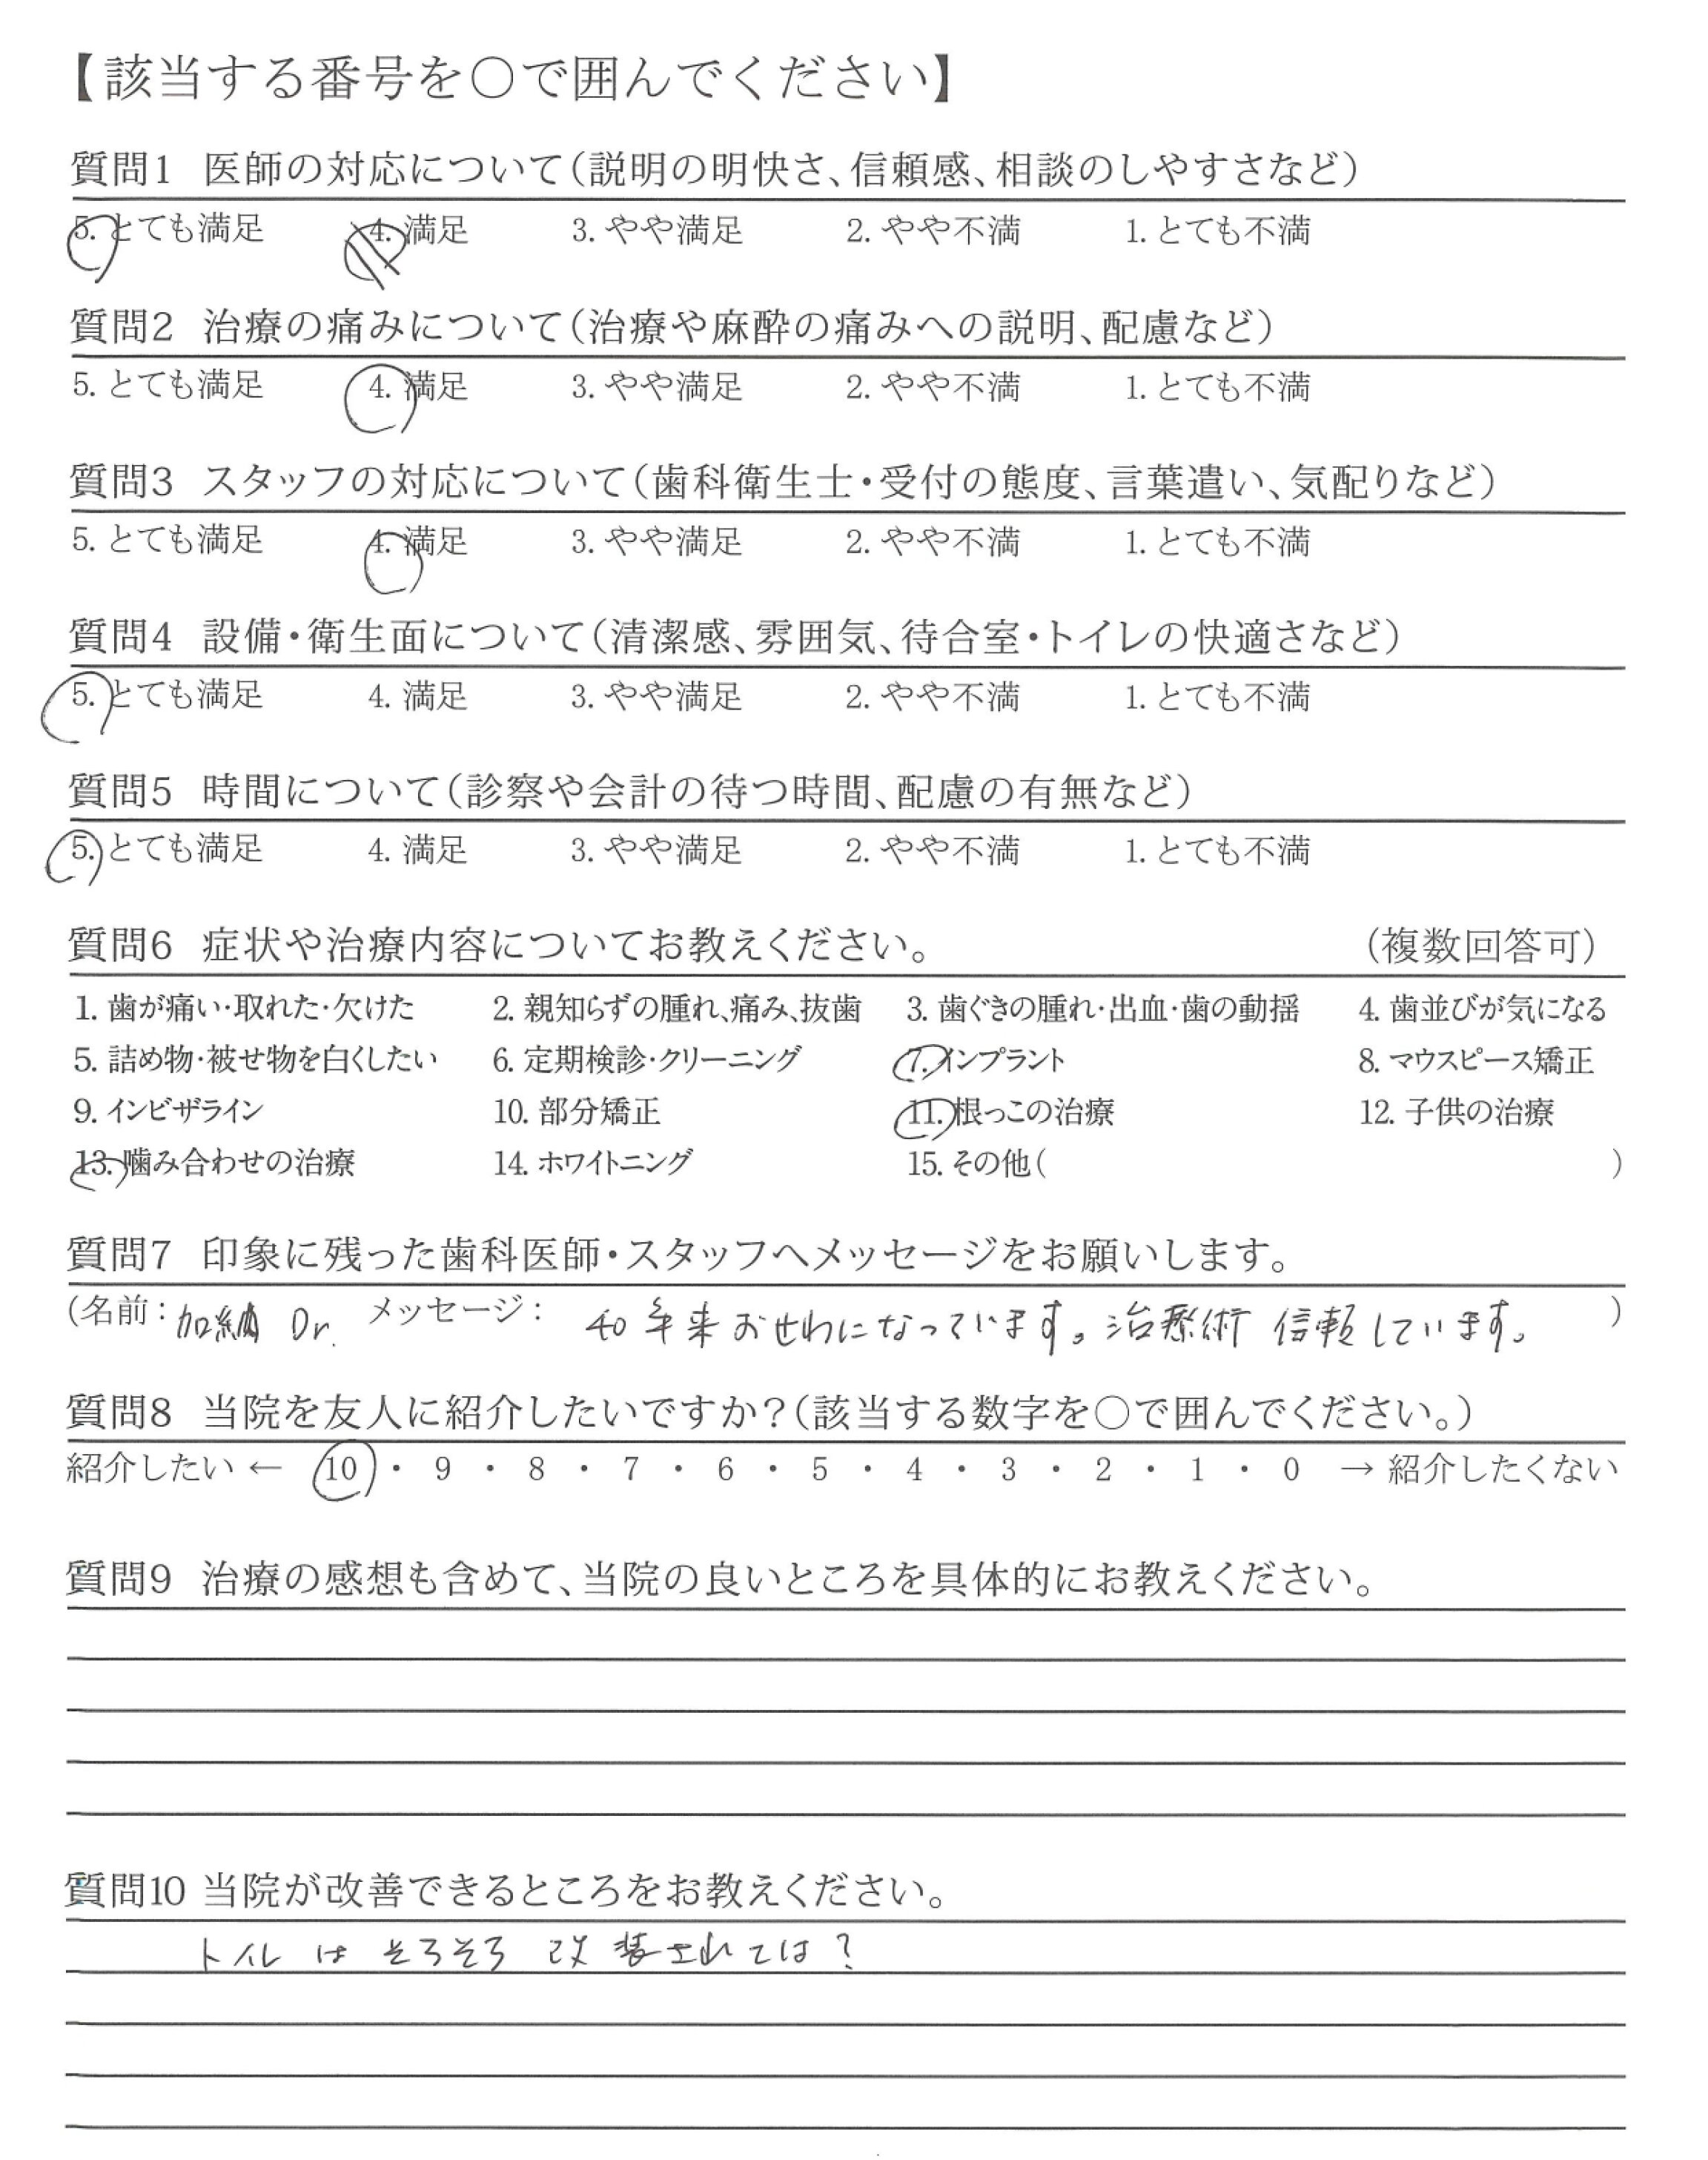 【該当する番号を○で囲んでください】
質問1 医師の対応について(説明の明快さ、信頼感、相談のしやすさなど)
5. とても満足 4. 満足 3. やや満足 2. やや不満 1. とても不満
質問2 治療の痛みについて(治療や麻酔の痛みへの説明、配慮など)
5. とても満足 4. 満足 3. やや満足 2. やや不満 1. とても不満
質問3 スタッフの対応について(歯科衛生士・受付の態度、言葉遣い、気配りなど)
5. とても満足 4. 満足 3. やや満足 2. やや不満 1. とても不満
質問4 設備・衛生面について(清潔感、雰囲気、待合室・トイレの快適さなど)
5. とても満足 4. 満足 3. やや満足 2. やや不満 1. とても不満
質問5 時間について(診察や会計の待つ時間、配慮の有無など)
5. とても満足 4. 満足 3. やや満足 2. やや不満 1. とても不満
質問6 症状や治療内容についてお教えください。 (複数回答可)
1. 歯が痛い・取れた・欠けた 2. 親知らずの腫れ、痛み、抜歯 3. 歯ぐきの腫れ・出血・歯の動揺 4. 歯並びが気になる
5. 詰め物・被せ物を白くしたい 6. 定期検診・クリーニング 7. インプラント 8. マウスピース矯正
9. インビザライン 10. 部分矯正 11. 根っこの治療 12. 子供の治療
13. 噛み合わせの治療 14. ホワイトニング 15. その他( )
質問7 印象に残った歯科医師・スタッフへメッセージをお願いします。
(名前: 加納 Dr. メッセージ: 40年来おせわになっています。治療術 信頼しています。 )
質問8 当院を友人に紹介したいですか?(該当する数字を○で囲んでください。)
紹介したい ← 10 ・ 9 ・ 8 ・ 7 ・ 6 ・ 5 ・ 4 ・ 3 ・ 2 ・ 1 ・ 0 → 紹介したくない
質問9 治療の感想も含めて、当院の良いところを具体的にお教えください。
質問10 当院が改善できるところをお教えください。
トイレは そろそろ 改装されては?